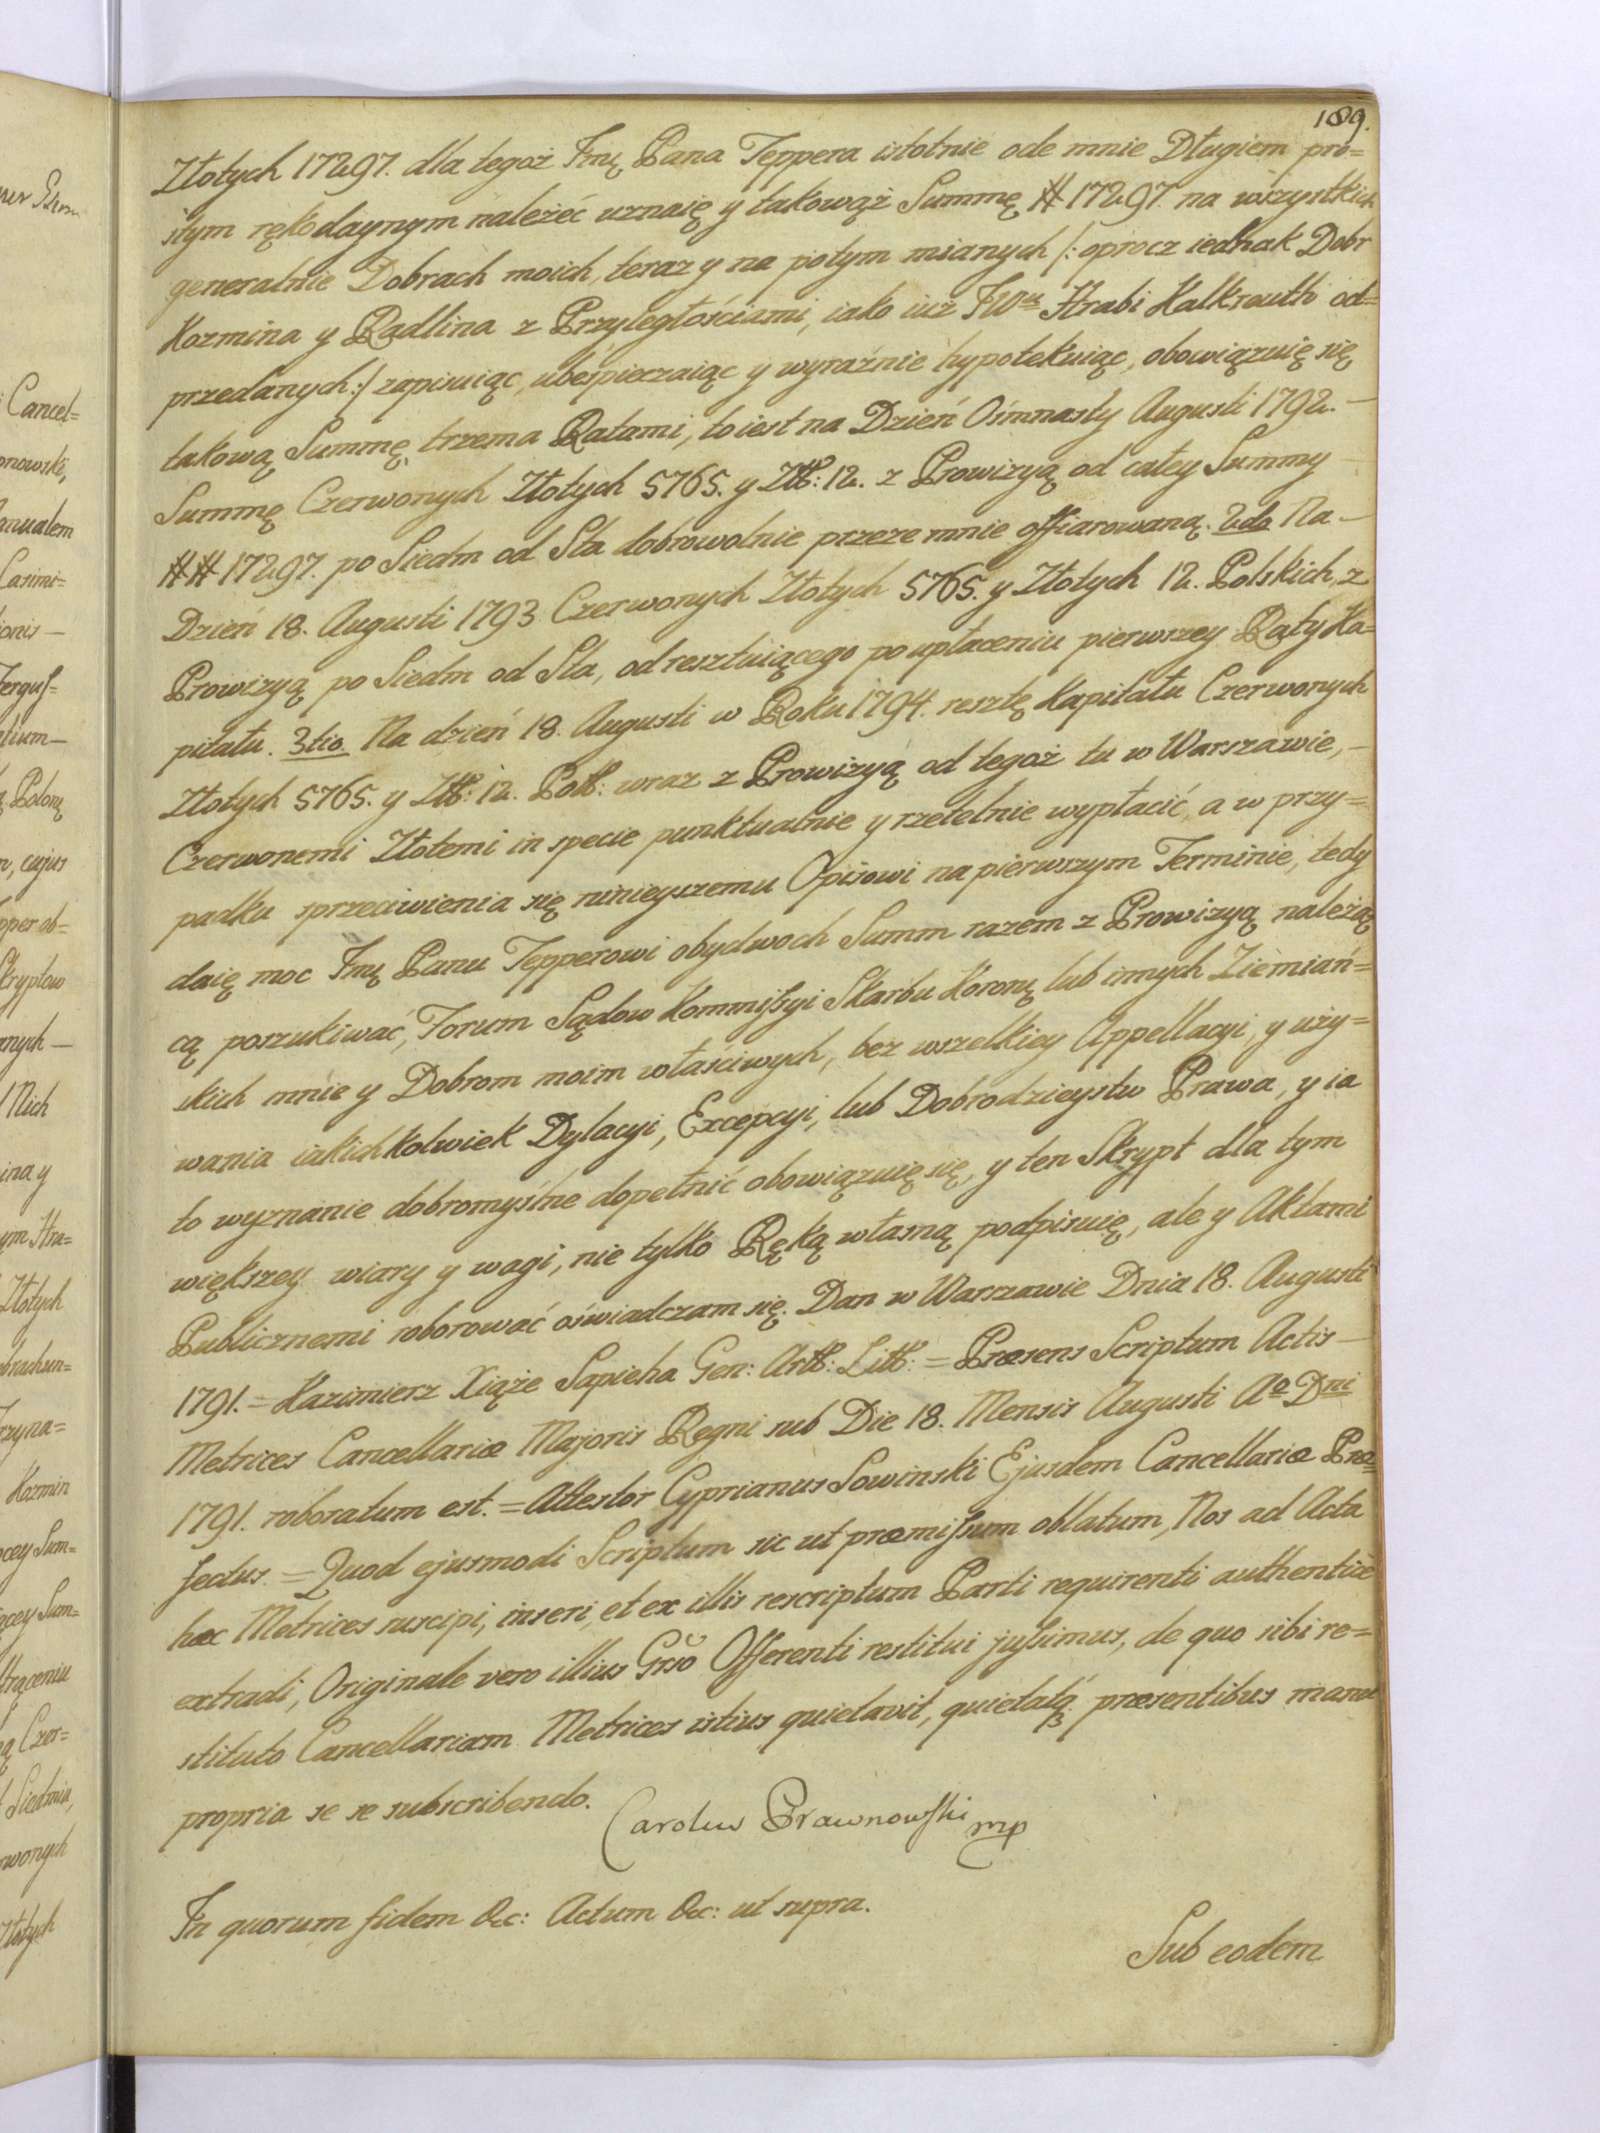 189.
Złotych 17297. dla tegoż Jmę Pana Teppera istotnie ode mnie Długiem pro=
stym rękodaynym należeć uznaię y takowąż Summę # 17297. na wszystkich
generalnie Dobrach moich, teraz y na potym mianych /: oprocz iednak Dobr
Kozmina y Radlina z Przyległościami, iako iuż JWu Hrabi Kalkreuth od=
przedanych :/ zapisuiąc, ubespieczaiąc y wyraźnie hypotekuiąc, obowiązuię się
takową Summę trzema Ratami, to iest na Dzień Ośmnasty Augusti 1792. —
Summę Czerwonych Złotych 5765. y Złł: 12. z Prowizyą od całey Summy —
## 17297. po Siedm od Sta dobrowolnie przeze mnie offiarowaną. 2do Na —
Dzień 18. Augusti 1793 Czerwonych Złotych 5765. y Złotych 12. Polskich, z
Prowizyą po Siedm od Sta, od resztuiącego po upłaceniu pierwszey Raty Ka=
pitału. 3tio Na dzień 18. Augusti w Roku 1794. resztę Kapitału Czerwonych
Złotych 5765. y Złł: 12. Polł: wraz z Prowizyą od tegoż tu w Warszawie, —
Czerwonemi Złotemi in specie punktualnie y rzetelnie wypłacić, a w przy=
padku sprzeciwienia się ninieyszemu Opisowi na pierwszym Terminie, tedy
daię moc Jmę Panu Tepperowi obydwoch Summ razem z Prowizyą należą
cą poszukiwać, Forum Sądow Kommissyi Skarbu Koronę lub innych Ziemiań=
skich mnie y Dobrom moim właściwych, bez wszelkiey Appellacyi, y uży=
wania iakichkolwiek Dylacyi, Excepcyi, lub Dobrodzieystw Prawa, y ia
to wyznanie dobromyślne dopełnić obowiązuię się, y ten Skrypt dla tym
większey wiary y wagi, nie tylko Ręką własną podpisuię, ale y Aktami
Publicznemi roborować oświadczam się. Dan w Warszawie Dnia 18. Augusti
1791. = Kazimierz Xiąże Sapieha Gen: Artł: Litł: = Præsens Scriptum Actis —
Metrices Cancellariæ Majoris Regni sub Die 18. Mensis Augusti Ao Dni
1791. roboratum est. = Attestor Cyprianus Sowinski Ejusdem Cancellariæ Præ=
fectus. = Quod ejusmodi Scriptum sic ut præmissum oblatum, Nos ad Acta
hæc Metrices suscipi, inseri, et ex illis rescriptum Parti requirenti authenticè
extradi, Originale vero illius Grso Offerenti restitui jussimus, de quo sibi re=
stituto Cancellariam Metrices istius quietavit, quietatq præsentibus manu
propria se se subscribendo.
Carolus Prawnowski mp
In quorum fidem &c: Actum &c: ut supra.
Sub eodem